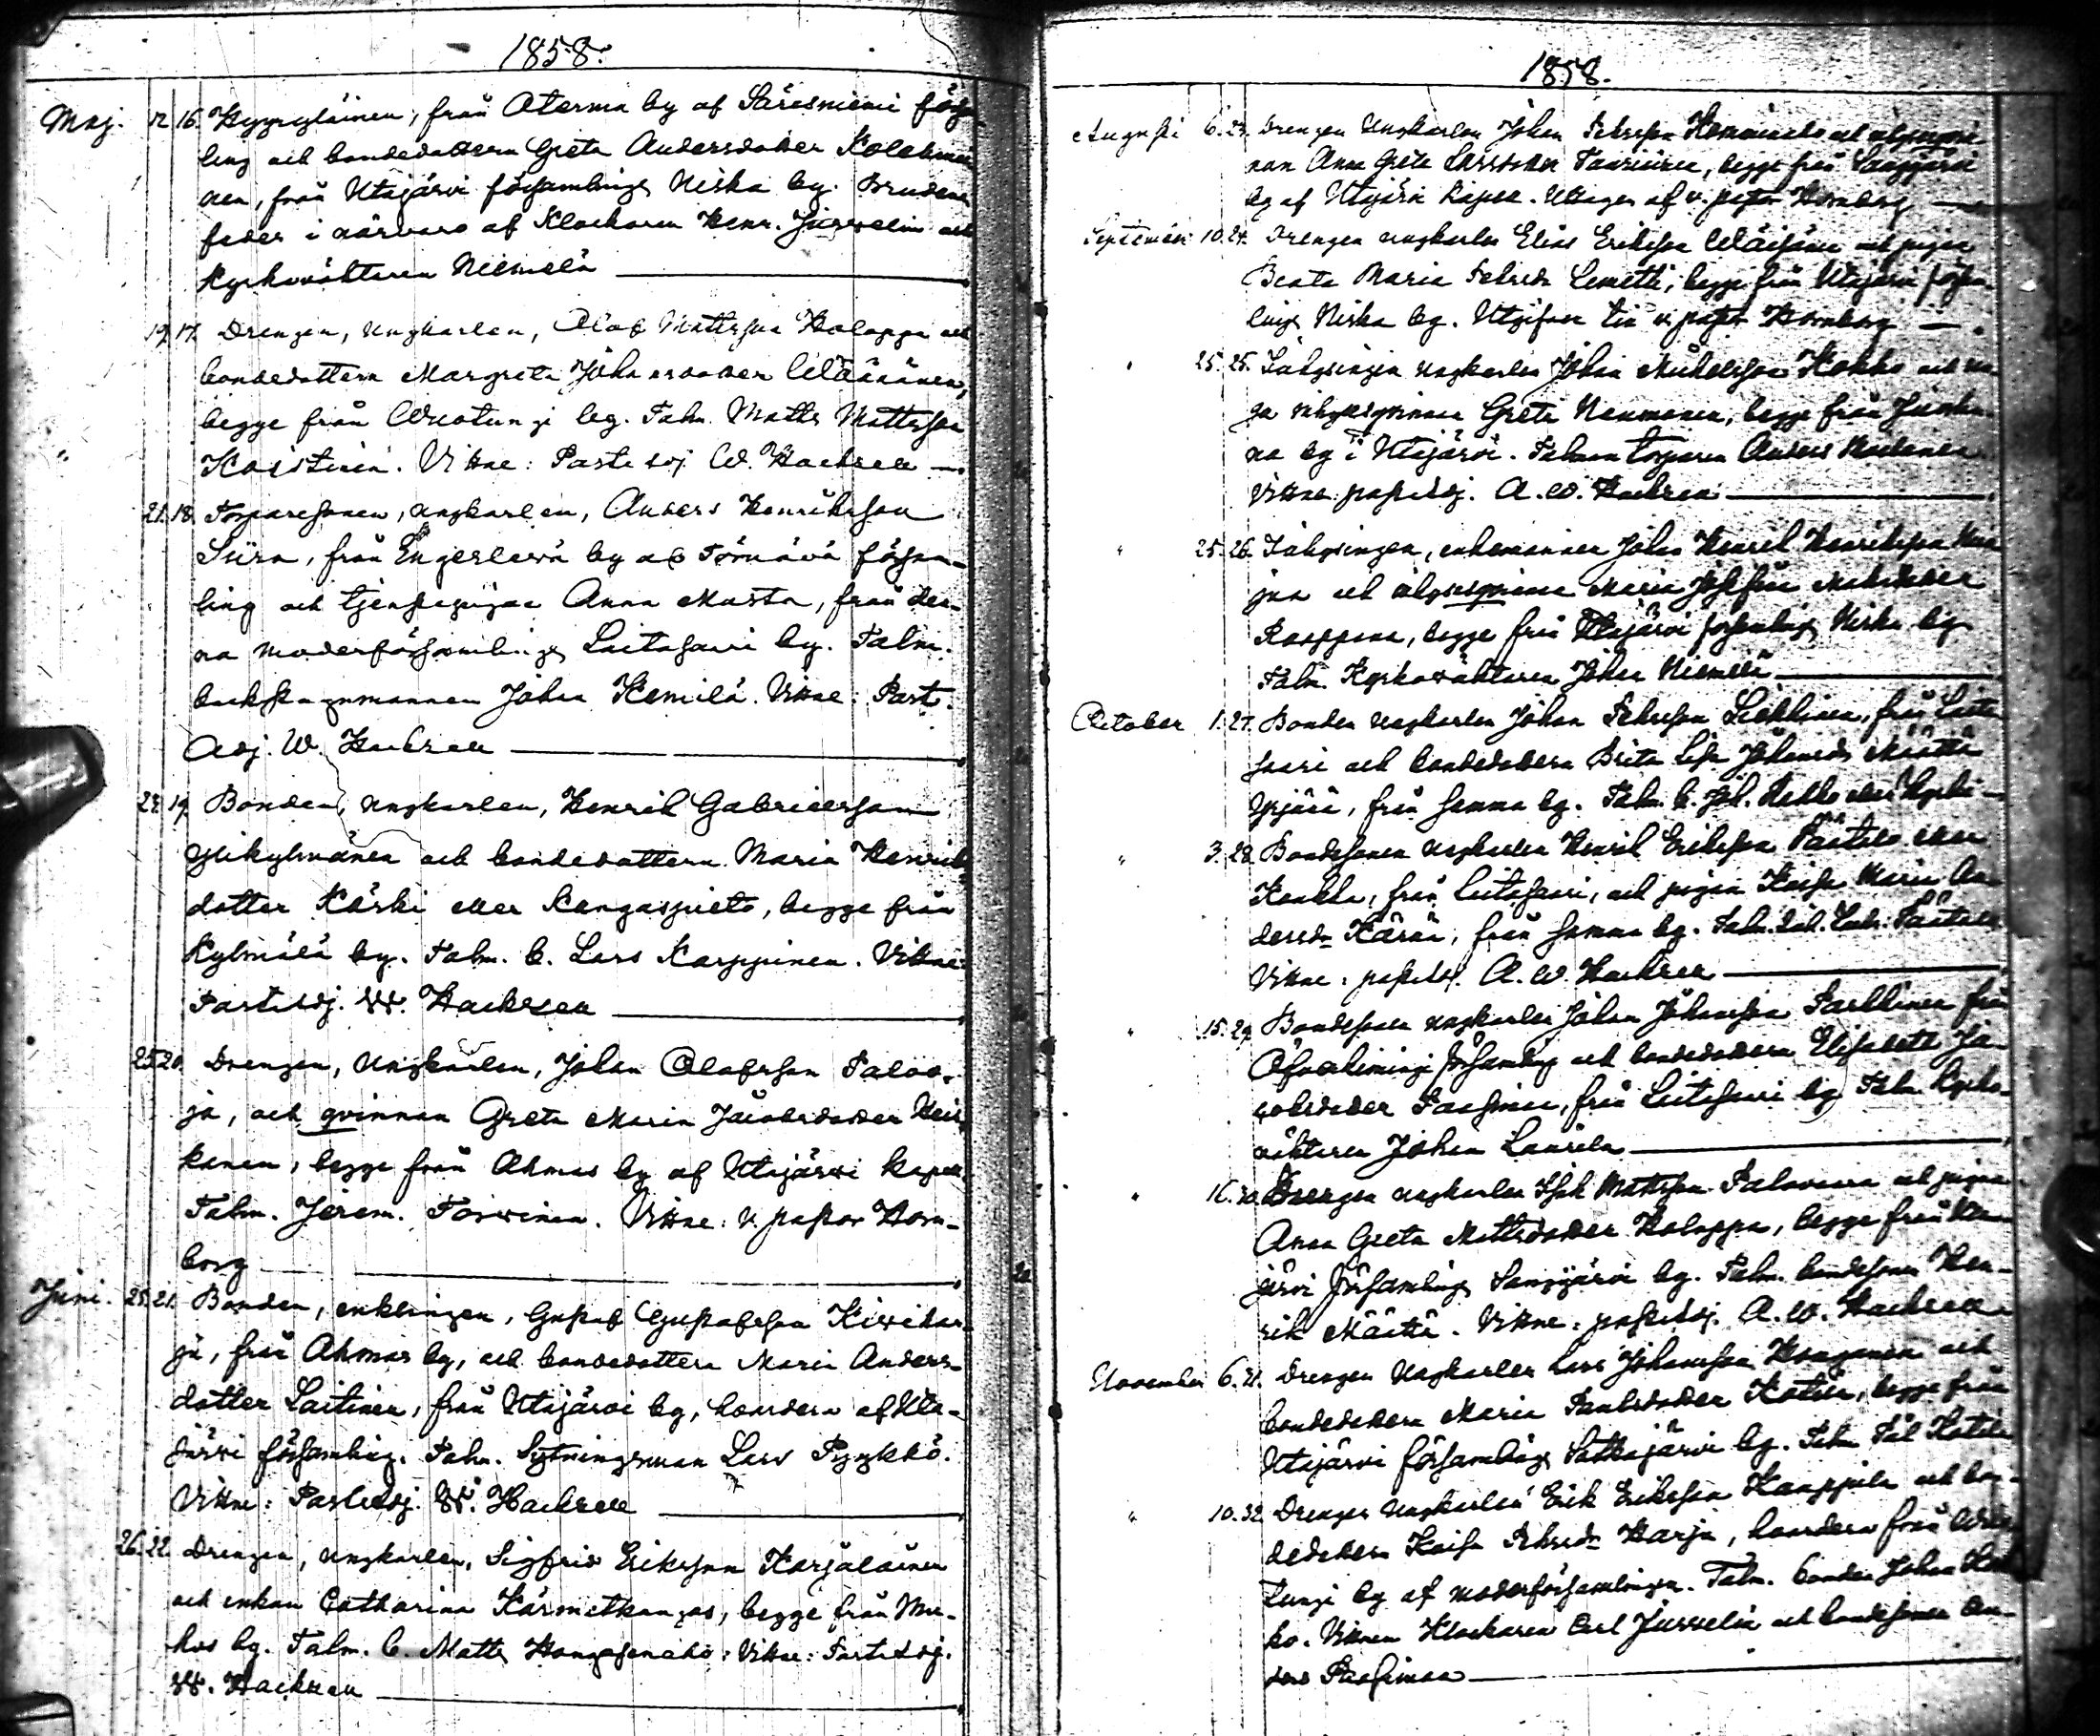 1858.
Maj. 12 16. Hyyryläinen, från Aterma by af Säräisniemi försam-
ling och bondedottern Greta Andersdotter Kolehmai-
nen, från Utajärvi församlings Niska by. Brudens
fader i närvaro af Klockaren Henr. Jusselin och
Kyrkovaktaren Niemelä
19. 17. Drengen, ungkarlen, Olof Mattsson Holappa och
bondedottern Margreta Johansdotter Wäänänen,
begge från Wuotungi by. Talm. Matts Mattsson
Koistinen. Vittne: Past. adj. W. Hackzell
21. 18. Torparesonen, ungkarlen, Anders Henriksson
Siira, från Engeslevä by af Tyrnävä försam-
ling och tjenstepigan Anna Musta, från den-
na moderförsamlings Laitasaari by. Talm.
backstugumannen Johan Kemilä. Vittne: Past.
Adj. W. Hackzell
23. 19. Bonden, ungkarlen, Henrik Gabrielsson
Ylikylmänen och bondedottern Maria Henriks
dotter Käski eller Kangaspieto, begge från
Kylmälä by. Talm. b. Lars Karppinen. Vittne:
Past. adj. W. Hackzell
25. 20. Drengen, Ungkarlen, Johan Olofsson Paloo-
ja, och qvinnan Greta Maria Jacobsdotter Heik-
kanen, begge från Ahmas by af Utajärvi kapell.
Talm. Jerem. Toivinen. Vittne: v. pastor Horn-
borg
Juni. 25. 21. Bonden, enklingen, Gustaf Gustafsson Kiwihar-
ju, från Ahmas by, och bondedottern Maria Anders-
dotter Laitinen, från Utajärvi by, hvardera af Uta-
järvi församling. Talm. Sytningsman Lars Pyykkö.
Vittne: Past. adj. W. Hackzell
26. 22. Drengen, ungkarlen, Sigfrid Eriksson Karjalainen
och enkan Catharina Kärmetkangas, begge från Mu-
hos by. Talm. b. Matts Hangasenaho. Vittne: Past. adj.
W. Hackzell
1858.
Augusti 6. 23. Drengen Ungkarlen Johan Petersson
nan Anna Greta Larsdotter begge från Sangijärvi
by af Utajärvi Kapell. af v. pastor Hornborg
September 10. 24. Drengen ungkarlen Elias Eriksson Wäisänen och pigan
Beata Maria Petersdr Lemetti, begge från Utajärvi försam-
lings Niska by. v. pastor Hornborg
" 25. 25. Inhysingen ungkarlen Johan Michelsson Kokko och
Greta Neumanen, begge från Juorku-
na by i Utajärvi. Talman torparen Anders
Vittne past. adj. A. W. Hackzell
" 25. 26. Inhysingen, enkemannen Johan Henrik Henriksson
jua och Maria Josefina
begge från Utajärvi församlings Niska by
Talm. Kyrkovaktaren Johan Niemelä
October 1. 27. Bonden ungkarlen Johan Petersson från Laita-
saari och bondedottern Brita Lisa Johansdr Määttä
från samma by. Talm. b. Joh.
" 3. 28. Bondesonen ungkarlen Henrik Eriksson Päätalo eller
från Laitasaari, och pigan Kaisa Maria An-
dersdr Kärnä, från samma by. Talm.
Vittne: past. adj. A. W. Hackzell
" 15. 29. Bondesonen ungkarlen Johan Johansson från
Öfverkiminge församling och bondedottern Elisabeth Ja-
cobsdotter Paasimaa, från Laitasaari by Talm. Kyrko-
vaktaren Johan Laurila
" 16. 30. Drengen ungkarlen Isak Mattsson Palovaara och pigan
Anna Greta Mattsdotter Holappa, begge från Uta-
järvi församlings Sangijärvi by. Talm. bondesonen Hen-
rik Määttä. Vittne: past. adj. A. W. Hackzell
November 6. 31. Drengen Ungkarlen Lars Johansson och
bondedottern Maria Paulsdotter Kotila, begge från
Utajärvi församlings Potkojärvi by. Talm. Pål Kotila
" 10. 32. Drengen Ungkarlen Erik Eriksson Kauppila och bon-
dedottern Kaisa Petersdr Harju, hvardera från Wuo-
tungi by af moderförsamlingen. Talm. bonden Johan
ko. Vittnen Klockaren Carl Jusselin och bondesonen An-
ders Paasimaa